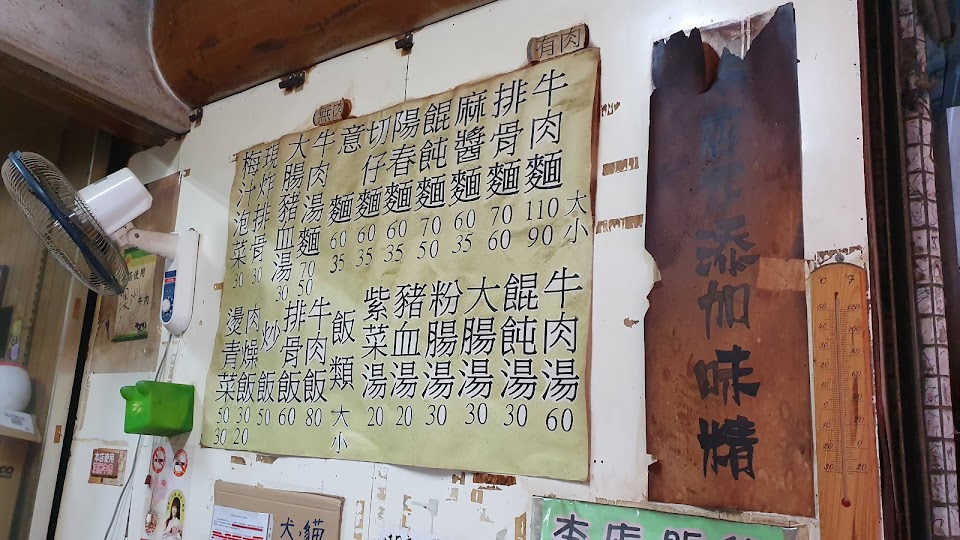 有肉
無肉
大小
牛肉麵 110 90
排骨麵 70 60
麻醬麵 60 35
餛飩麵 70 50
陽春麵 60 35
切仔麵 60 35
意麵 60 35
牛肉湯麵 70 50
大腸豬血湯 30
現炸排骨 30
梅汁泡菜 30
牛肉湯 60
餛飩湯 30
大腸湯 30
粉腸湯 30
豬血湯 20
紫菜湯 20
飯類 大小
牛肉飯 80
排骨飯 60
炒飯 50
肉燥飯 30 20
燙青菜 50 30
添加味精
本店使用
犬.貓
本店